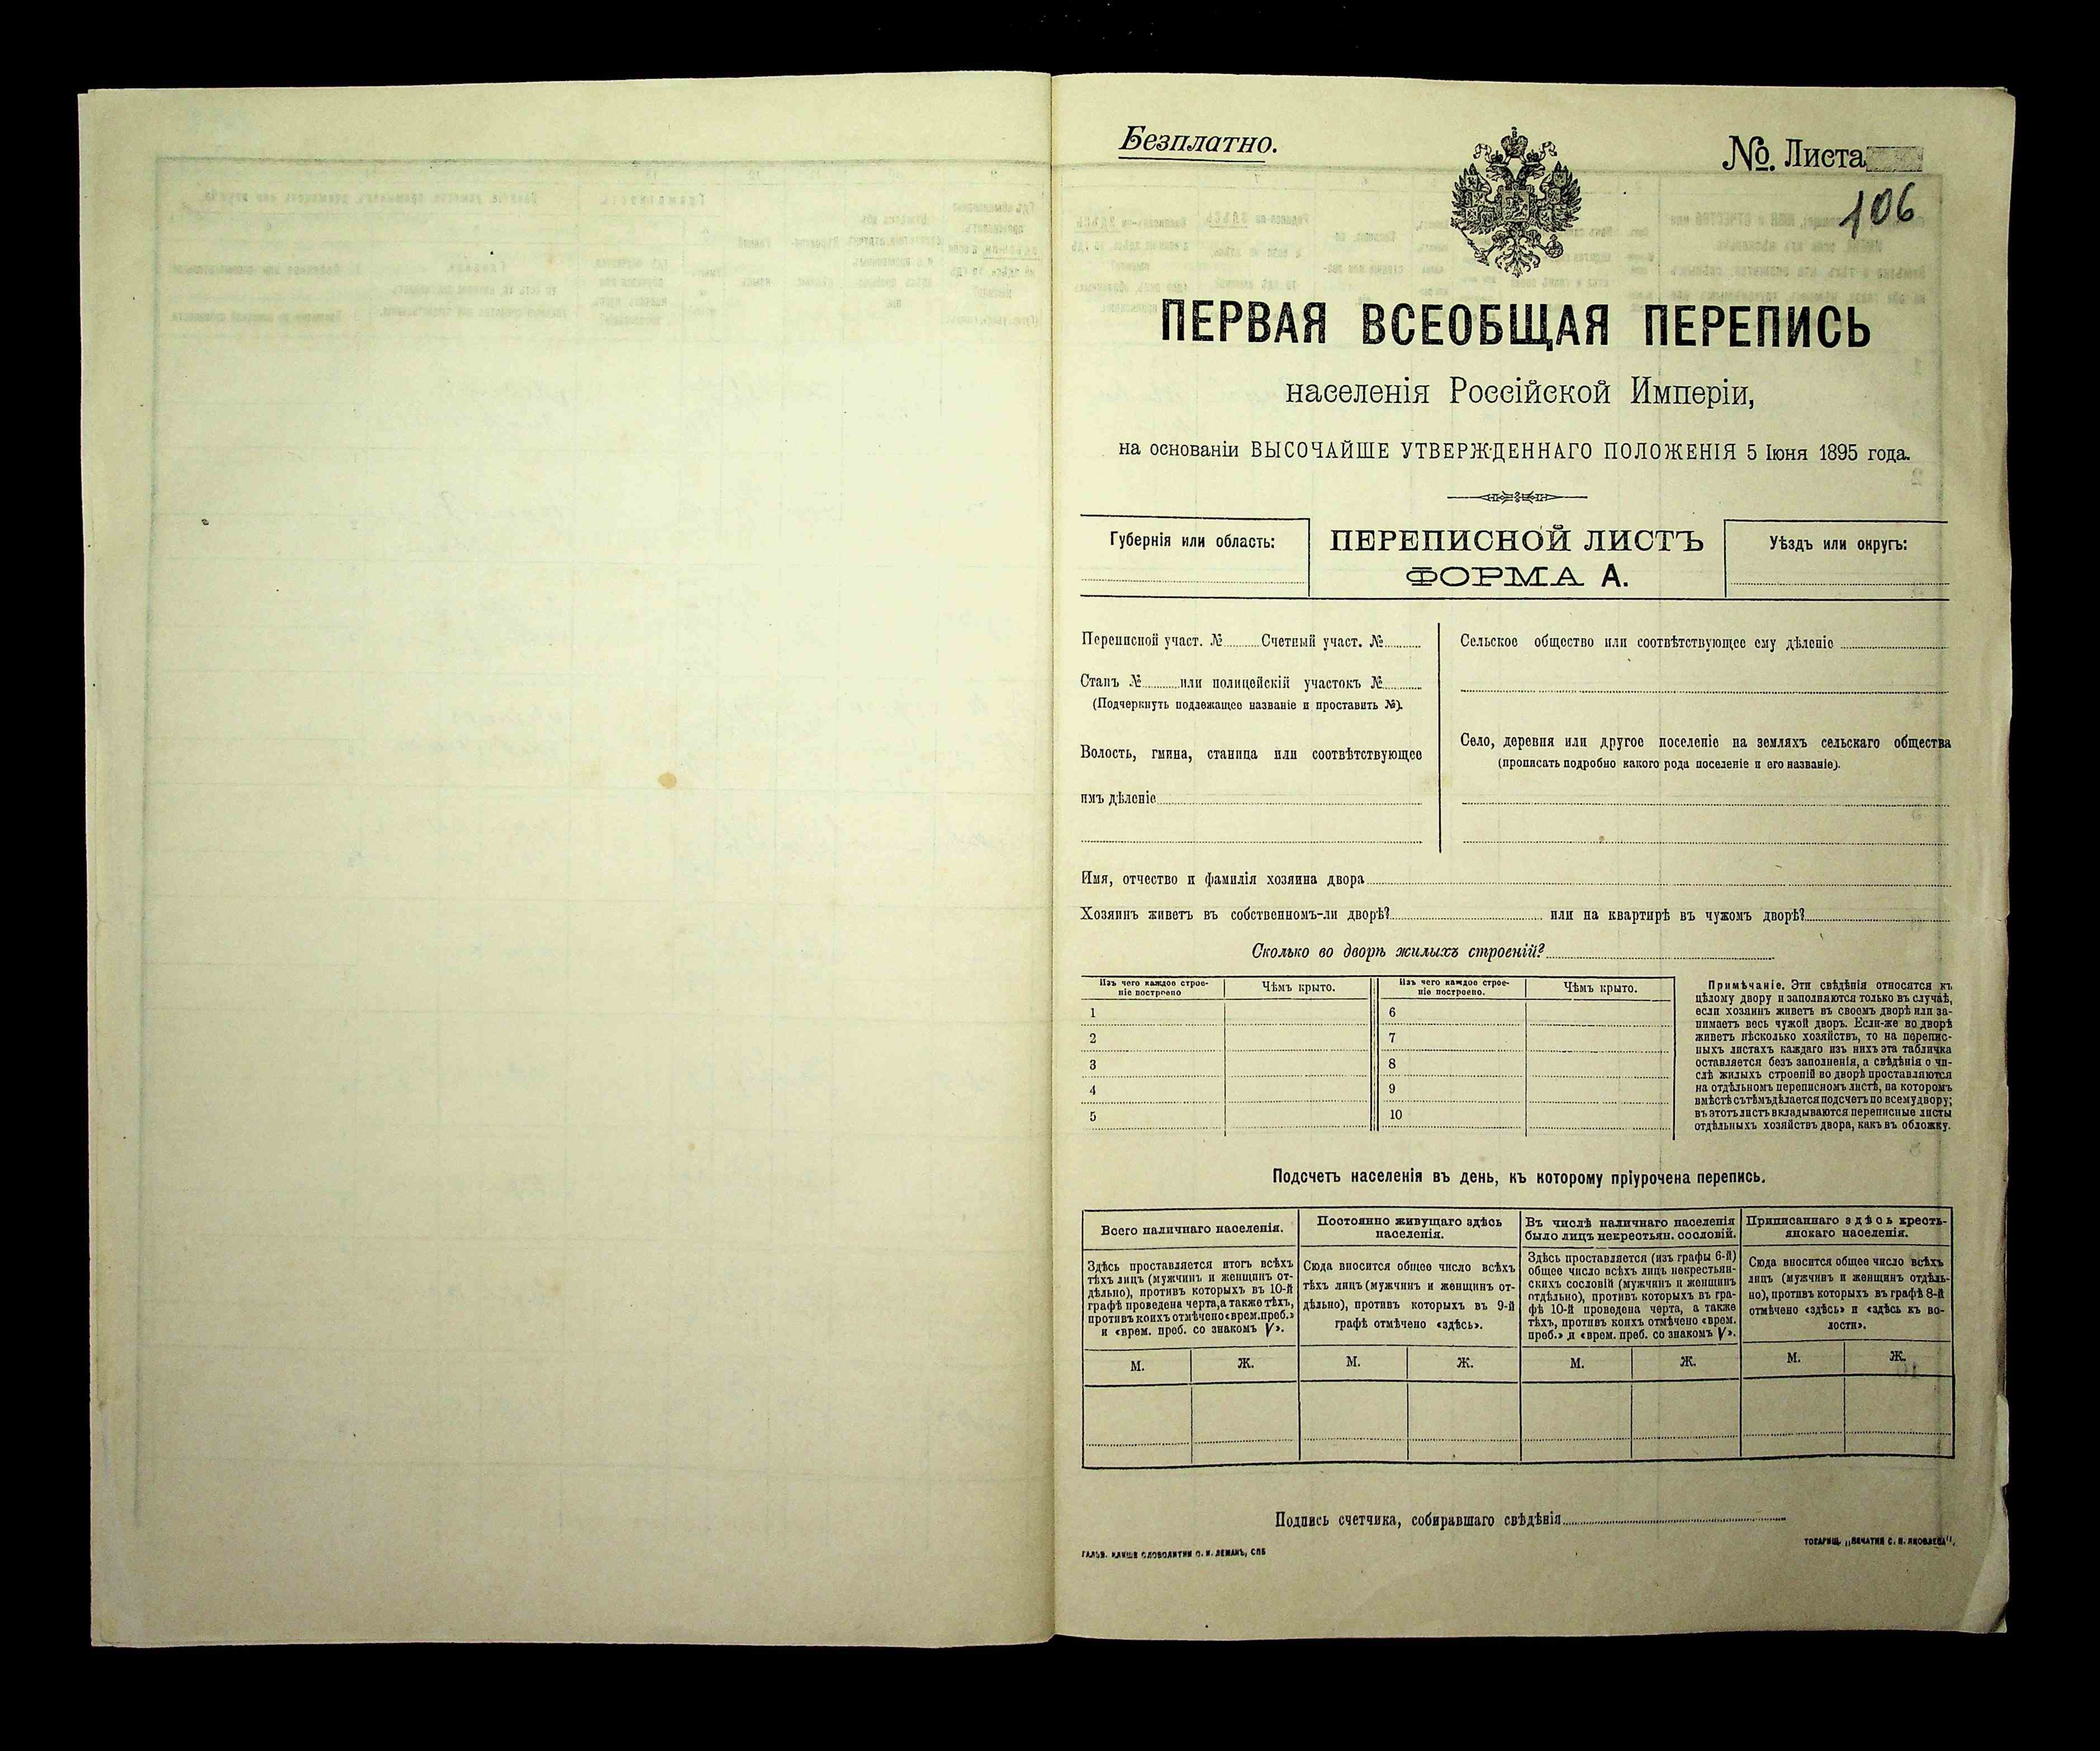 Безплатно.
№. Листа
106
ПЕРВАЯ ВСЕОБЩАЯ ПЕРЕПИСЬ
населенія Россійской Имперіи,
на основаніи ВЫСОЧАЙШЕ УТВЕРЖДЕННАГО ПОЛОЖЕНІЯ 5 Іюня 1895 года.
Губернія или область:
ПЕРЕПИСНОЙ ЛИСТЪ
ФОРМА А.
Уѣздъ или округъ:
Переписной участ. № Счетный участ. №
Станъ № или полицейскій участокъ №
(Подчеркнуть подлежащее названіе и проставить №).
Волость, гмина, станица или соотвѣтствующее
имъ дѣленіе
Сельское общество или соотвѣтствующее ему дѣленіе
Село, деревня или другое поселеніе на земляхъ сельскаго общества
(прописать подробно какого рода поселеніе и его названіе).
Имя, отчество и фамилія хозяина двора
Хозяинъ живетъ въ собственномъ-ли дворѣ? или на квартирѣ въ чужомъ дворѣ?
Сколько во дворѣ жилыхъ строеній?
Изъ чего каждое строе-
ніе построено
Чѣмъ крыто.
Изъ чего каждое строе-
ніе построено.
Чѣмъ крыто.
1
2
3
4
5
6
7
8
9
10
Примѣчаніе. Эти свѣдѣнія относятся къ
цѣлому двору и заполняются только въ случаѣ,
если хозяинъ живетъ въ своемъ дворѣ или за-
нимаетъ весь чужой дворъ. Если-же во дворѣ
живетъ нѣсколько хозяйствъ, то на перепис-
ныхъ листахъ каждаго изъ нихъ эта табличка
оставляется безъ заполненія, а свѣдѣнія о чи-
слѣ жилыхъ строеній во дворѣ проставляются
на отдѣльномъ переписномъ листѣ, на которомъ
вмѣстѣ съ тѣмъ дѣлается подсчетъ по всему двору;
въ этотъ листъ вкладываются переписные листы
отдѣльныхъ хозяйствъ двора, какъ въ обложку.
Подсчетъ населенія въ день, къ которому пріурочена перепись.
Всего наличнаго населенія.
Здѣсь проставляется итогъ всѣхъ
тѣхъ лицъ (мужчинъ и женщинъ от-
дѣльно), противъ которыхъ въ 10-й
графѣ проведена черта, а также тѣхъ,
противъ коихъ отмѣчено «врем. преб.»
и «врем. преб. со знакомъ V».
М. Ж.
Постоянно живущаго здѣсь
населенія.
Сюда вносится общее число всѣхъ
тѣхъ лицъ (мужчинъ и женщинъ от-
дѣльно), противъ которыхъ въ 9-й
графѣ отмѣчено «здѣсь».
М. Ж.
Въ числѣ наличнаго населенія
было лицъ некрестьян. сословій.
Здѣсь проставляется (изъ графы 6-й)
общее число всѣхъ лицъ некрестьян-
скихъ сословій (мужчинъ и женщинъ
отдѣльно), противъ которыхъ въ гра-
фѣ 10-й проведена черта, а также
тѣхъ, противъ коихъ отмѣчено «врем.
преб.» и «врем. преб. со знакомъ V».
М. Ж.
Приписаннаго здѣсь кресть-
янскаго населенія.
Сюда вносится общее число всѣхъ
лицъ (мужчинъ и женщинъ отдѣль-
но), противъ которыхъ въ графѣ 8-й
отмѣчено «здѣсь» и «здѣсь къ во-
лости».
М. Ж.
Подпись счетчика, собиравшаго свѣдѣнія
ГАЛЬВ. КЛИШЕ СЛОВОЛИТНИ О. И. ЛЕМАНЪ, СПБ
ТОВАРИЩ. „ПЕЧАТНЯ С. П. ЯКОВЛЕВА".